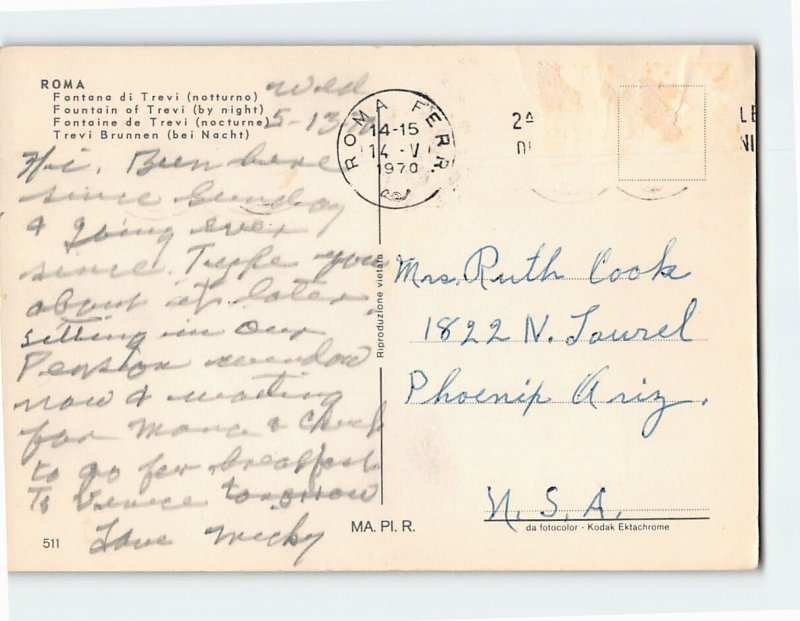 ROMA
Fontana di Trevi (notturno)
Fountain of Trevi (by night)
Fontaine de Trevi (nocturne)
Trevi Brunnen (bei Nacht)
Wed
5-13
Hi. Been here
since Sunday
& going ever
since. you
about it later.
sitting in our
Pension window
now & waiting
for &
to go for breakfast.
To Venice tomorrow
Love Micky
511
MA. PI. R.
Riproduzione vietata
ROMA FERR.
14-15
14 - V
1970
2ª
Mrs. Ruth Cook
1822 N. Laurel
Phoenix Ariz.
U. S. A.
da fotocolor - Kodak Ektachrome